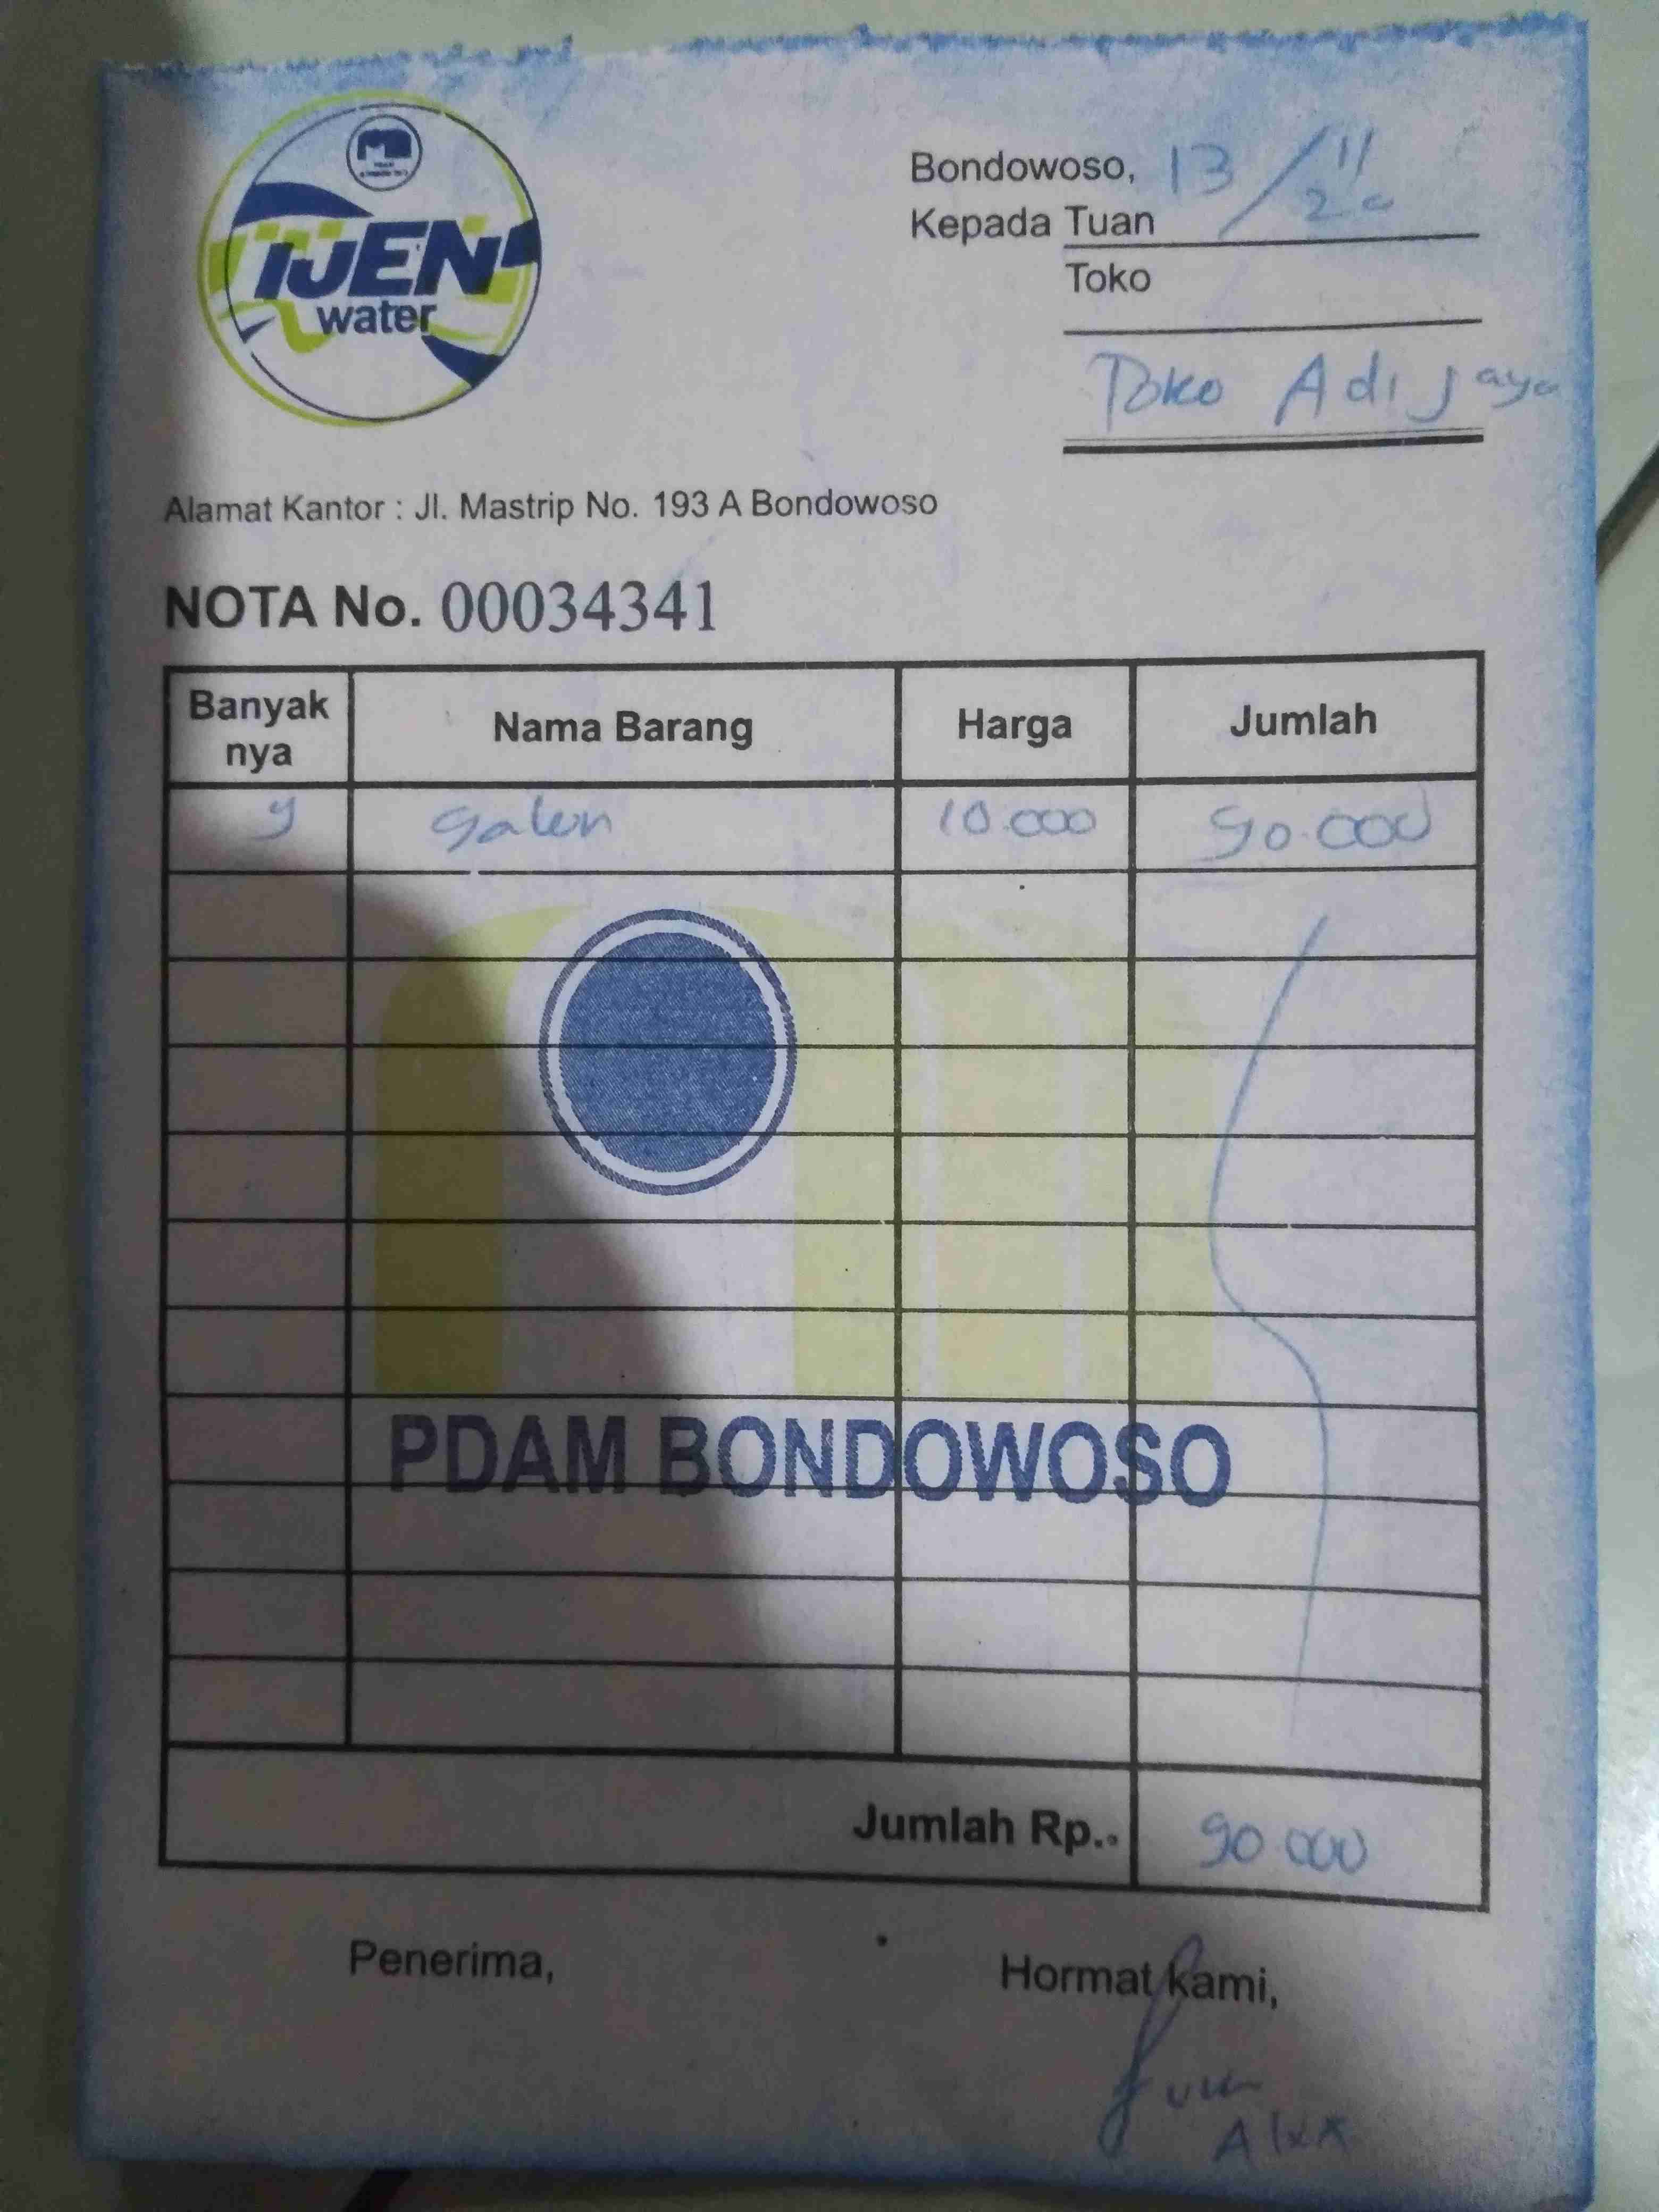 IJEN
water
Bondowoso, 13/11
20
Kepada Tuan
Toko
Toko Adi Jaya
Alamat Kantor : Jl. Mastrip No. 193 A Bondowoso
NOTA No. 00034341
Banyak nya Nama Barang Harga Jumlah
9 galon 10.000 90.000
PDAM BONDOWOSO
Jumlah Rp.. 90 000
Penerima, Hormat kami,